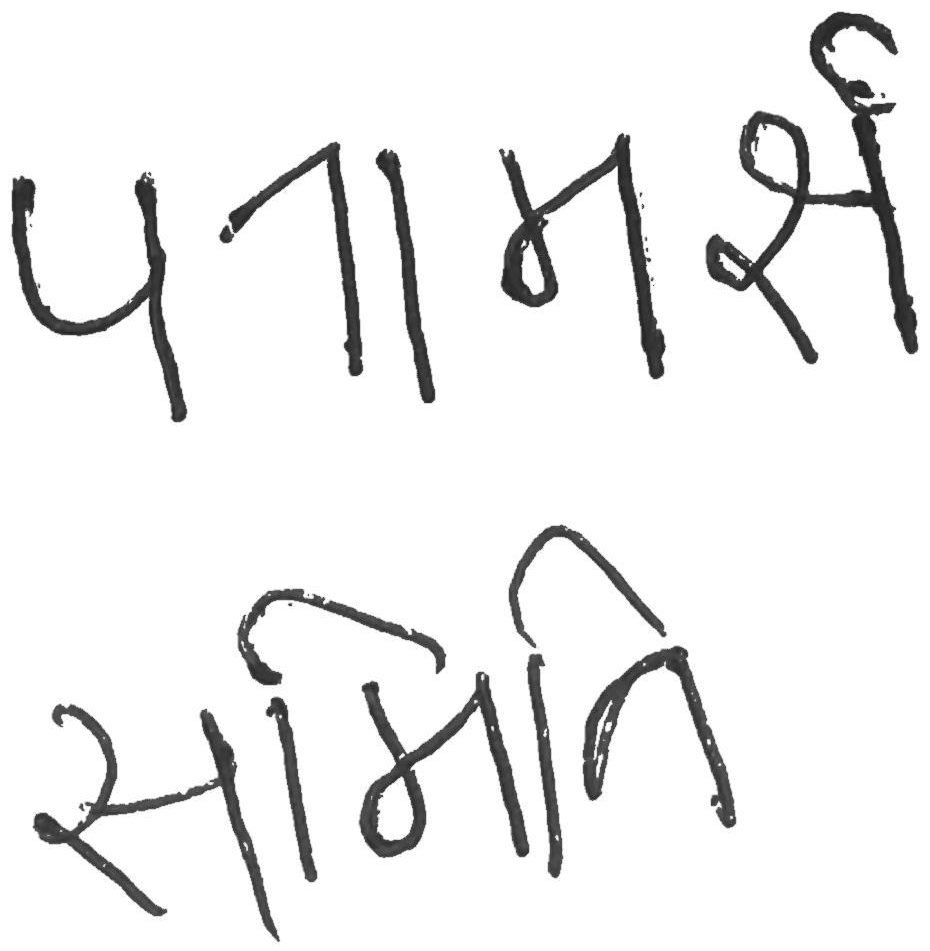 परामर्श
समिति